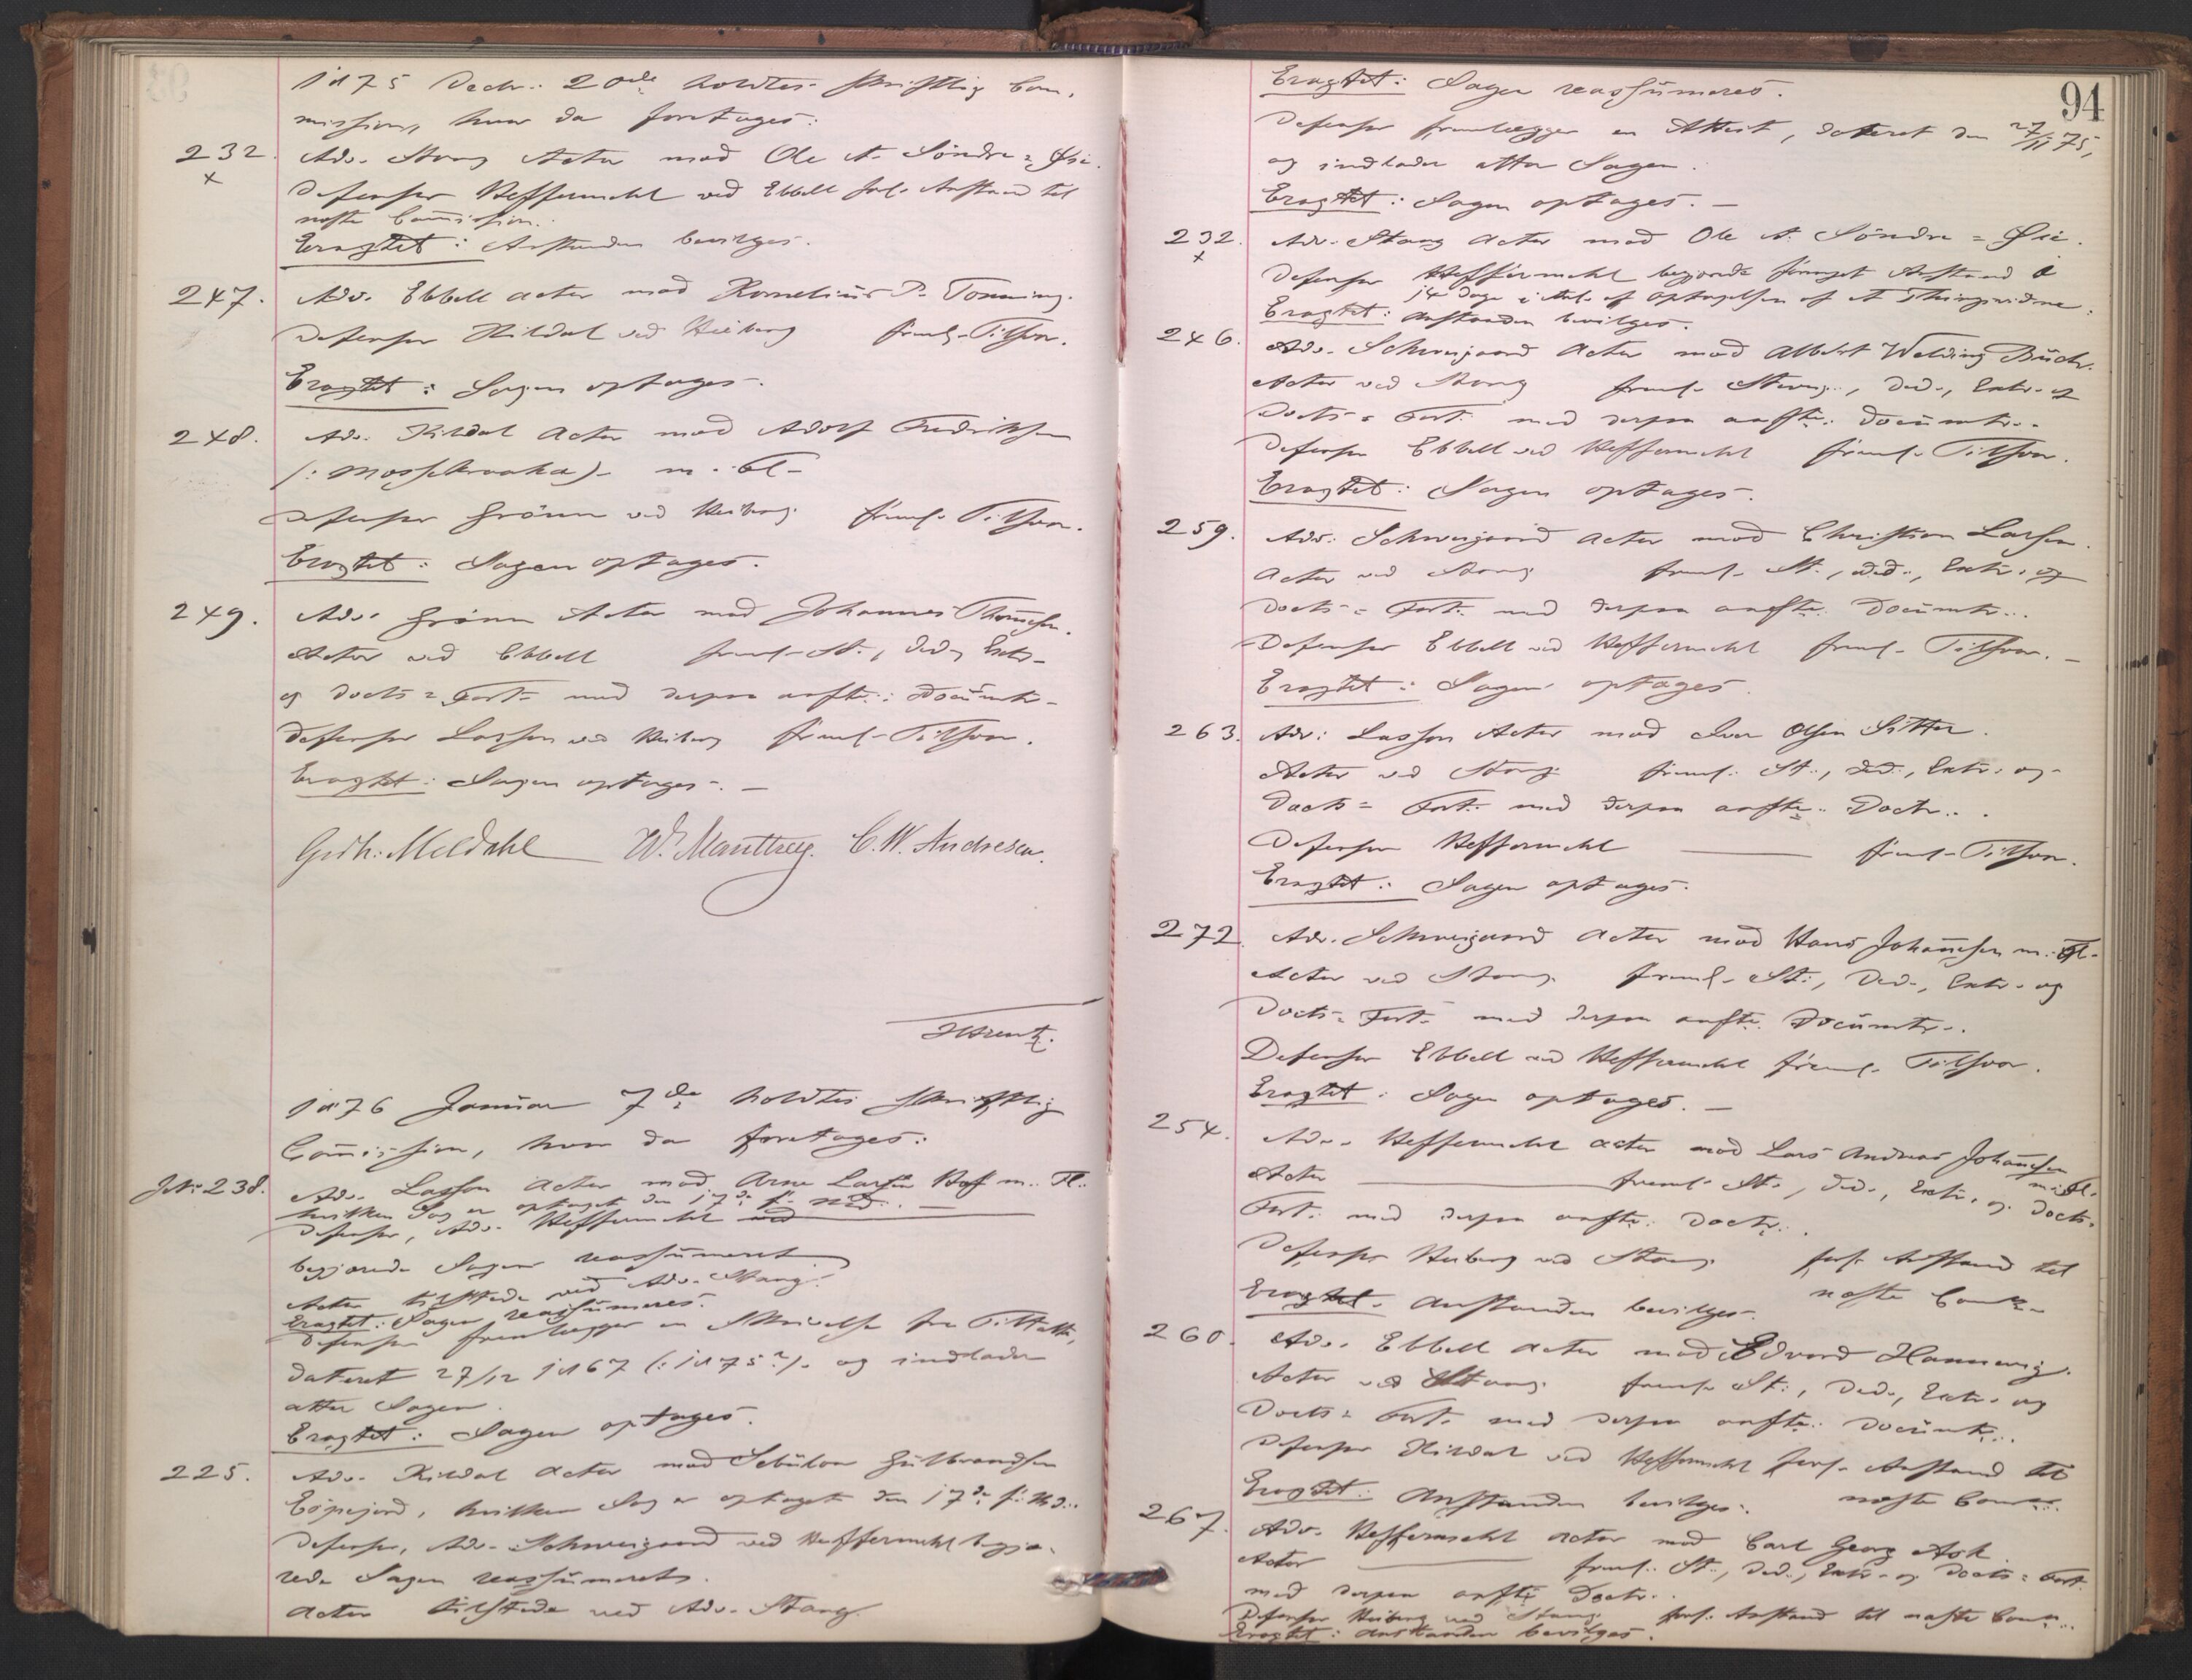 1875 Decbr. 20de holdtes skriftlig Com-
mission, hvor da foretages:
232. Adv. Stang Actor mod Ole A. Söndre=Øie.
x
Defensor Heffermehl ved Ebbell forl. Anstand til
næste Commission.
Eragtet: Anstanden bevilges.
247. Adv. Ebbell Actor mod Kornelius P. Tonning.
Defensor Hildal ved Heiberg freml. Tilsvar.
Eragtet: Sagen optages.
248. Adv. Kildal Actor mod Adolf Fredriksen
(: Mossekraaka) m. Fl.
Defensor Grönn ved Heiberg freml. Tilsvar.
Eragtet: Sagen optages.
249. Adv. Grönn Actor mod Johannes Thomesen.
Actor ved Ebbell freml. St., Ded., Extr.
og Docts= Fort. med derpaa anførte Documtr.
Defensor Lasson ved Heiberg freml. Tilsvar.
Eragtet: Sagen optages. —
Gedh: Meldahl W. Manthey. C. W. Andresen.
1876 Januar 7de holdtes skriftlig
Commission, hvor da foretages:
No 238. Adv. Lasson Actor mod Arne Larsen Hof m. Fl.
hvilken Sag er optaget den 17de f. Md. —
Defensor, Adv. Heffermehl
begjærede Sagen reassumeret
Actor tilstede ved Adv. Stang.
Eragtet: Sagen reassumeres.
Defensor fremlægger en Skrivelse fra Tiltalte,
dateret 27/12 1867 (: 1875?) og indlader
atter Sagen.
Eragtet: Sagen optages.
225. Adv. Kildal Actor mod Sebulon Gulbrandsen
hvilken Sag er optaget den 17de f. Md.
Defensor, Adv. Schweigaard ved Heffermehl begjæ-
rede Sagen reassumeret.
Actor tilstede ved Adv. Stang.
94
Eragtet: Sagen reassumeres.
Defensor fremlægger en Attest, dateret den 27/11 75,
og indlader atter Sagen.
Eragtet: Sagen optages. —
232. Adv. Stang Actor mod Ole A. Söndre=Øie.
x
Defensor Heffermehl begjærede forenget Anstand i
14 Dage i Anl. af Optagelsen af et Thingsvidne.
Eragtet: Anstanden bevilges.
246. Adv. Schweigaard Actor mod Albert Welding Buch.
Actor ved Stang freml. Stevng., Ded., Extr. og
Docts= Fort. med derpaa anførte Documtr.
Defensor Ebbell ved Heffermehl freml. Tilsvar.
Eragtet: Sagen optages.
259. Adv. Schweigaard Actor mod Christian Larsen.
Actor ved Stang freml. St., Ded., Extr. og
Docts= Fort. med derpaa anførte Documtr.
Defensor Ebbell ved Heffermehl freml. Tilsvar. —
Eragtet: Sagen optages.
263. Adv. Lasson Actor mod Iver Olsen Sitter.
Actor ved Stang freml. St., Ded., Extr. og
Docts= Fort. med derpaa anførte Doctr.
Defensor Heffermehl — freml. Tilsvar.
Eragtet: Sagen optages.
272. Adv. Schweigaard Actor mod Hans Johannesen m. Fl.
Actor ved Stang freml. St., Ded., Extr. og
Docts= Fort. med derpaa anførte Documtr.
Defensor Ebbell ved Heffermehl freml. Tilsvar.
Eragtet: Sagen optages. —
254. Adv. Heffermehl Actor mod Lars Andreas Johannesen
m. Fl.
Actor — freml. St., Ded., Extr. og Docts.
Fort. med derpaa anførte Doctr.
Defensor Heiberg ved Stang forl. Anstand til
næste Comm.
Eragtet. Anstanden bevilges.
260. Adv. Ebbell Actor mod Edvard Hannevig.
Actor ved Stang freml. St., Ded., Extr. og
Docts= Fort. med derpaa anførte Documtr.
Defensor Hildal ved Heffermehl forl. Anstand til
næste Comm.
Eragtet: Anstanden bevilges.
267. Adv. Heffermehl Actor mod Carl Georg Ask.
Actor — freml. St., Ded., Extr. og Docts= Fort.
med derpaa anførte Doctr.
Defensor Heiberg ved Stang forl. Anstand til næste Comm.
Eragtet: Anstanden bevilges.